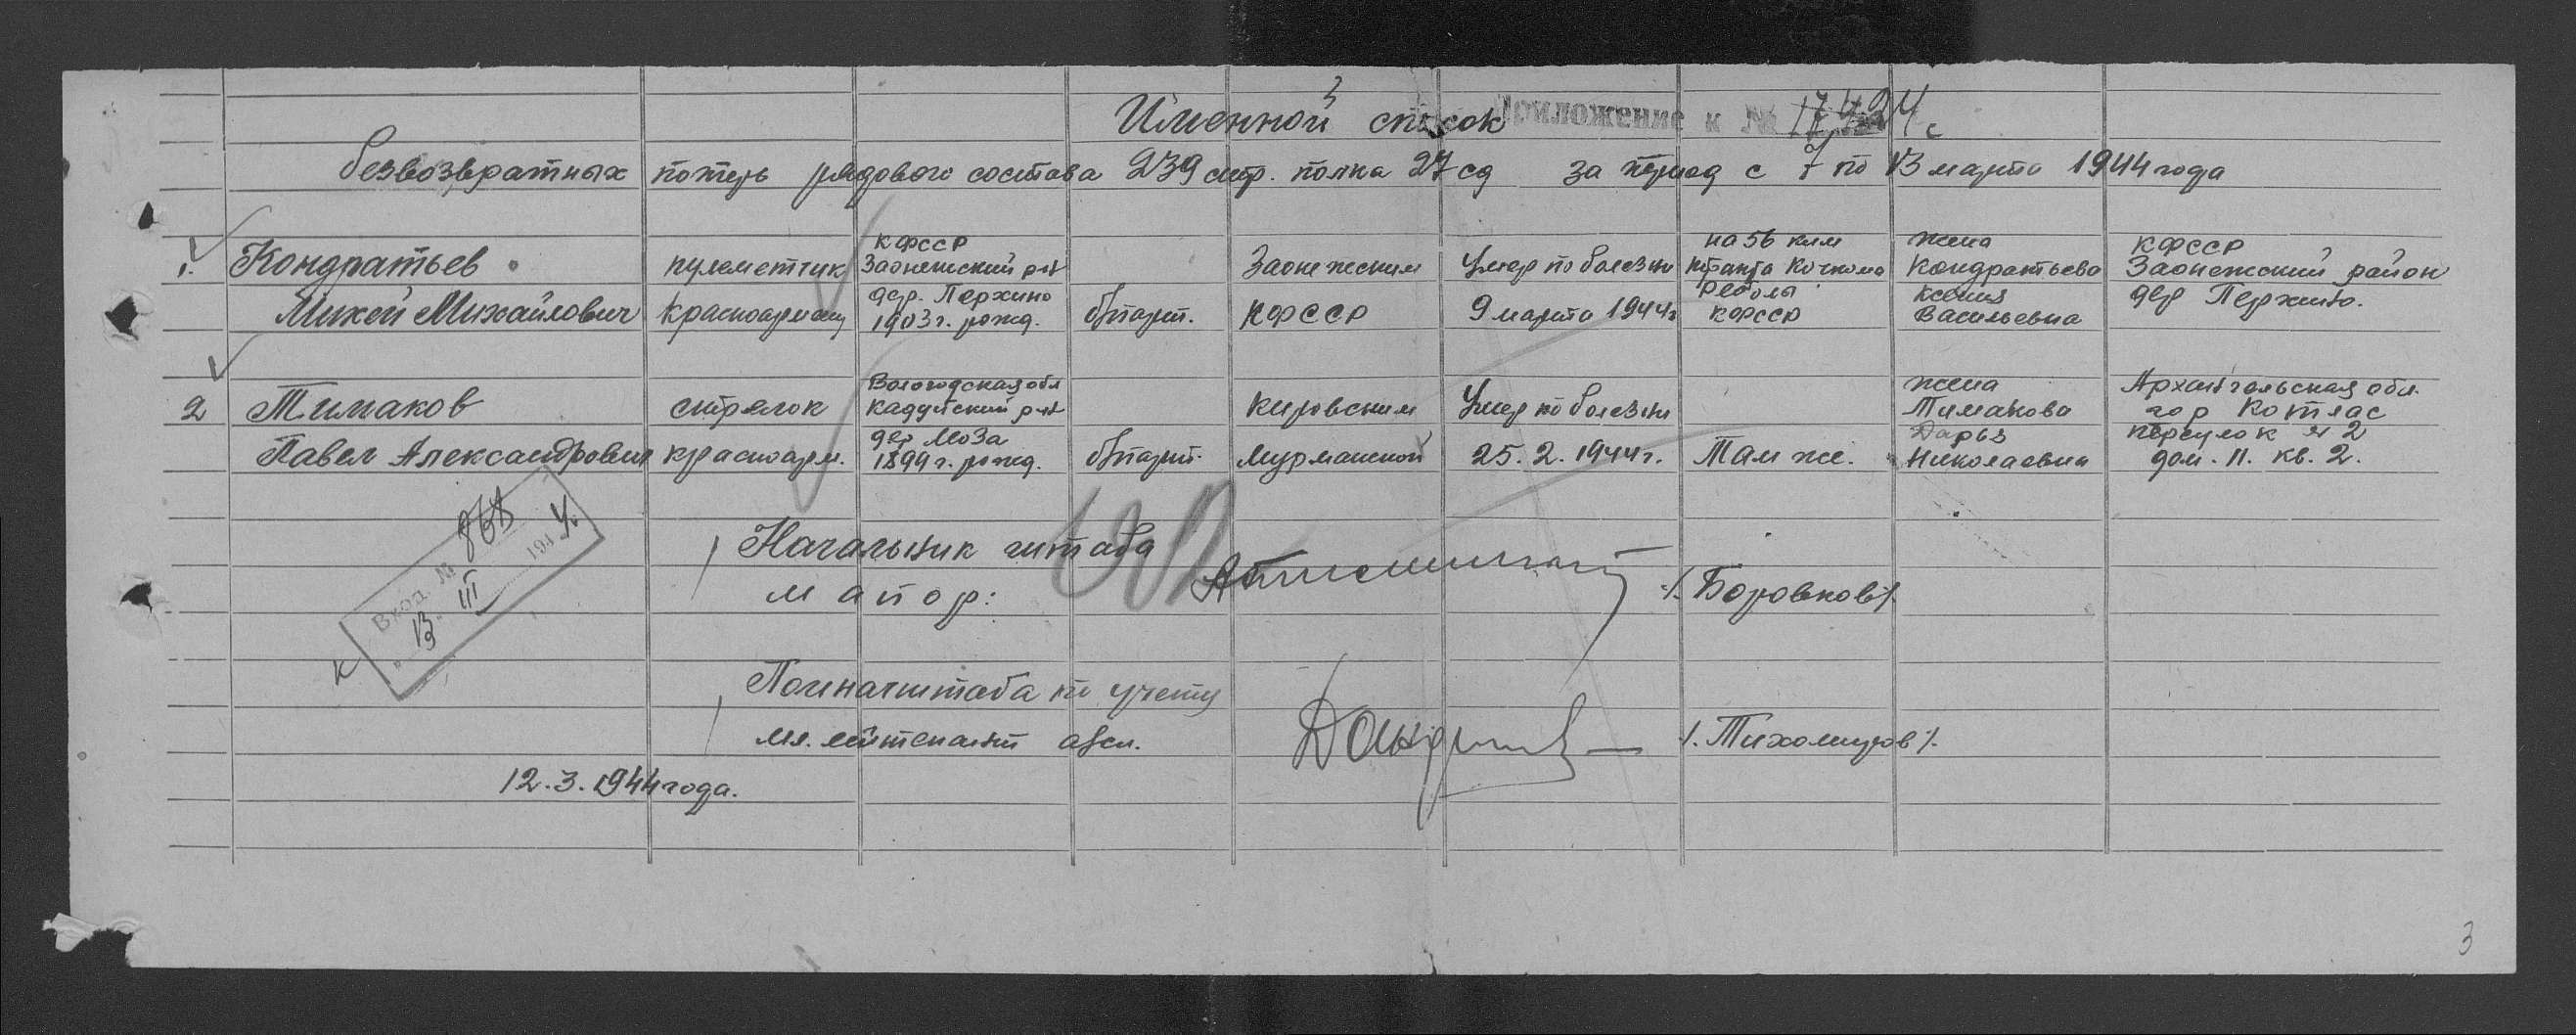 Именной список Приложение к № 17424с
безвозвратных потерь рядового состава 239 стр. полка 27 сд за период с 7 по 13 марта 1944 года
1. Кондратьев
Михей Михайлович
пулеметчик
красноармеец
КФССР
Заонежский р-н
дер. Перхино
1903 г. рожд.
б/парт.
Заонежским
КФССР
Умер по болезни
9 марта 1944 г
на 56 клм
тракта Кочкома
Реболы
КФССР
жена
Кондратьева
Ксения
Васильевна
КФССР
Заонежский район
дер Перхино.
2 Тимаков
Павел Александрович
стрелок
красноарм.
Вологодская обл
Кадуйский р-н
дер Моза
1899 г. рожд.
б/парт.
Кировским
Мурманской
Умер по болезни
25. 2. 1944 г.
Там же.
жена
Тимакова
Дарья
Николаевна
Архангельская обл.
гор Котлас
переулок № 2
дом. 11. кв. 2.
Начальник штаба
майор:
/. Боровков /.
Вход № 868
"13" III 1944
Помначштаба по учету
мл. лейтенант адм.
/. Тихомиров /.
12. 3. 1944 года.
3